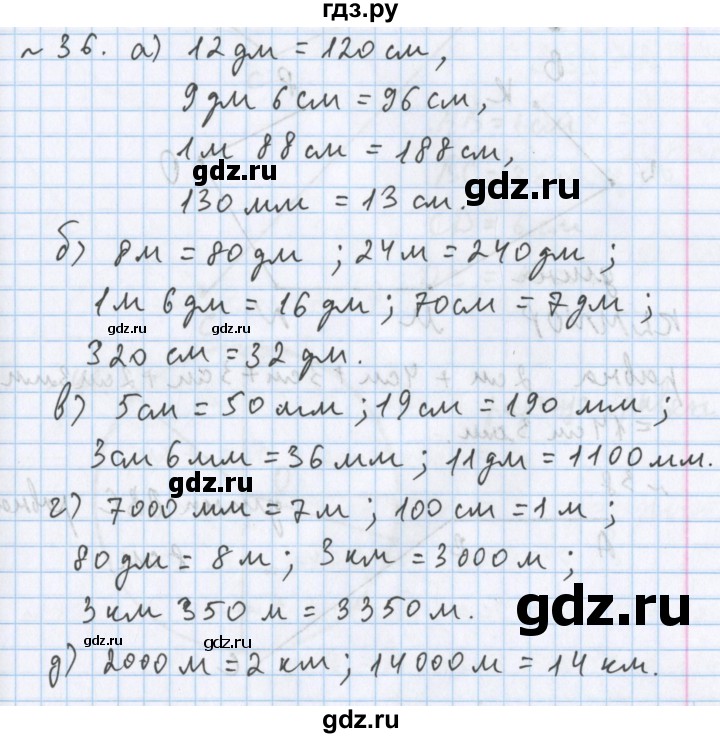 гдз.ру
№36. а) 12 дм = 120 см,
9 дм 6 см = 96 см,
1 м 88 см = 188 см,
gdz.ru
gdz.ru
130 мм = 13 см.
б) 8 м = 80 дм ; 24 м = 240 дм ;
1 м 6 дм = 16 дм ; 70 см = 7 дм ;
gdz.ru
gdz.ru
320 см = 32 дм.
в) 5 см = 50 мм ; 19 см = 190 мм ;
3 см 6 мм = 36 мм ; 11 дм = 1100 мм.
gdz.ru
г) 7000 мм = 7 м ; 100 см = 1 м ;
80 дм = 8 м ; 3 км = 3000 м ;
3 км 350 м = 3350 м.
gdz.ru
gdz.ru
gdz.ru
д) 2000 м = 2 км ; 14000 м = 14 км.
gdz.ru